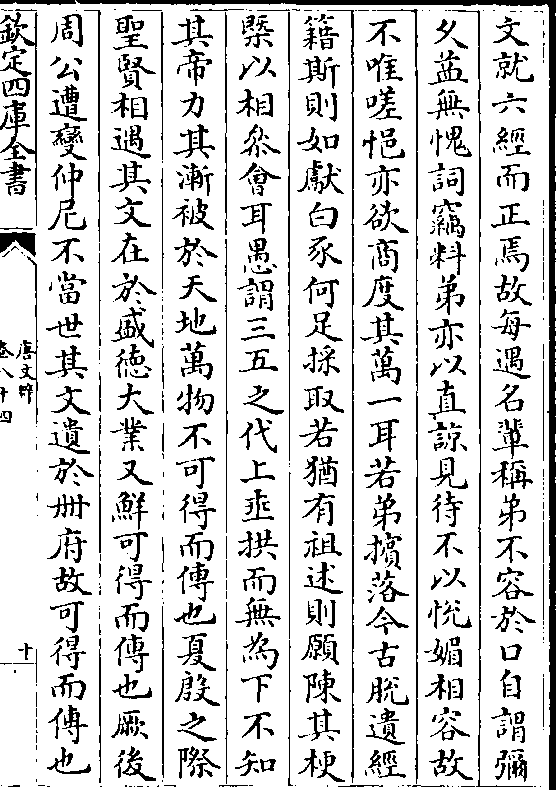 文就六經而正焉故每遇名輩稱弟不容於口自謂彌
久益無愧詞竊料弟亦以直諒見待不以恱媚相容故
不唯嗟悒亦欲商度其萬一耳若弟擯落今古脫遺經
籍斯則如獻白豕何足採取若猶有祖述則願陳其梗
槩以相叅會耳愚謂三五之代上垂拱而無為下不知
其帝力其漸被於天地萬物不可得而傳也夏殷之際
聖賢相遇其文在於盛徳大業又鮮可得而傳也厥後
周公遭變仲尼不當世其文遺於冊府故可得而傳也
欽定四庫全書
唐文粹
卷八十四
十